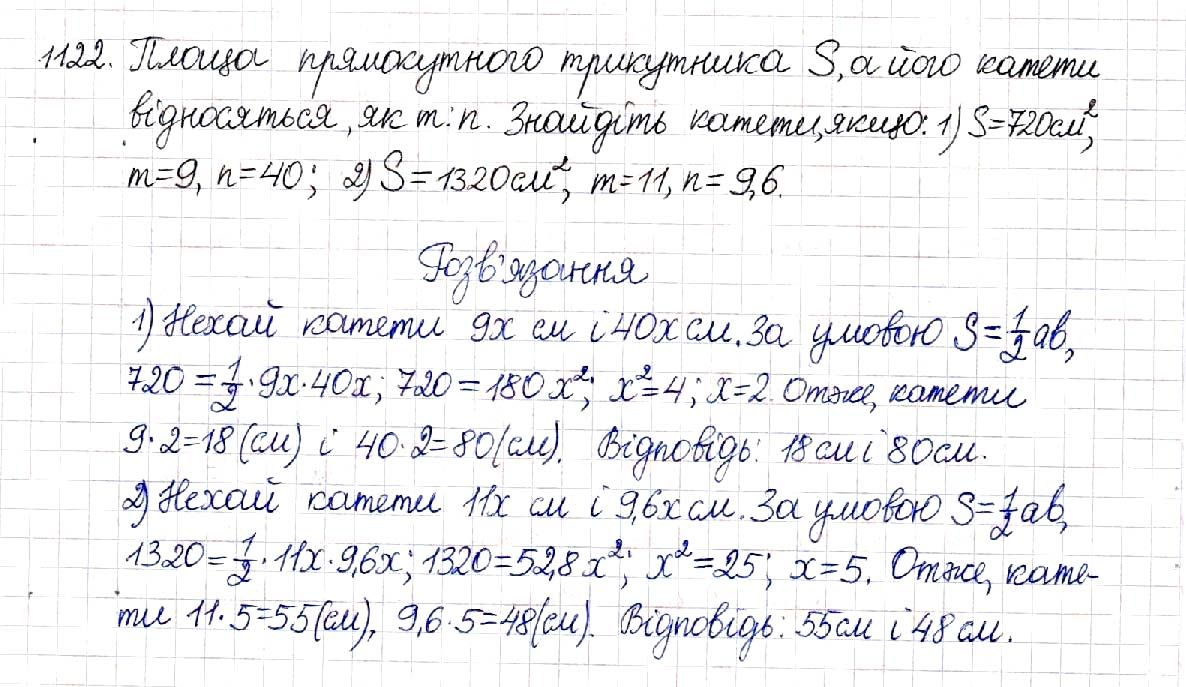 1122. Площа прямокутного трикутника S, а його катети
відносяться, як m:n. Знайдіть катети, якщо: 1) S=720см²,
m=9, n=40; 2) S=1320см², m=11, n=9,6.
Розв'язання
1) Нехай катети 9x см і 40x см. За умовою S=½ab,
720=½·9x·40x; 720=180x²; x²=4; x=2. Отже, катети
9·2=18(см) і 40·2=80(см). Відповідь: 18см і 80см.
2) Нехай катети 11x см і 9,6x см. За умовою S=½ab,
1320=½·11x·9,6x; 1320=52,8x²; x²=25; x=5. Отже, кате-
ти 11·5=55(см), 9,6·5=48(см). Відповідь: 55см і 48см.